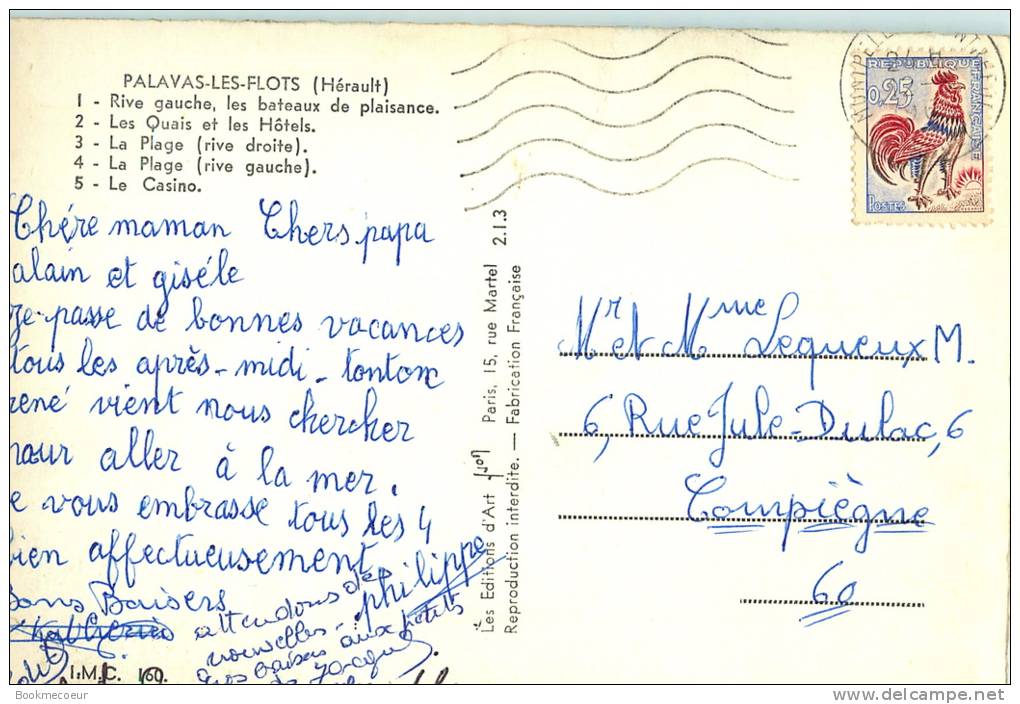 PALAVAS-LES-FLOTS (Hérault)
1 - Rive gauche, les bateaux de plaisance.
2 - Les Quais et les Hôtels.
3 - La Plage (rive droite).
4 - La Plage (rive gauche).
5 - Le Casino.
Chére maman Chers papa
alain et giséle
Je passe de bonnes vacances
tous les après-midi - tonton
rené vient nous chercher
pour aller à la mer.
e vous embrasse tous les 4
bien affectueusement
philippe
Bons Baisers
attendons des
nouvelles -
gros baisers aux petits
I.M.C. 60.
Les Editions d'Art Paris, 15, rue Martel 2.1.3
Reproduction interdite. — Fabrication Française
REPUBLIQUE FRANÇAISE
0,25
POSTES
Mr et Mme Lequeux M.
6, Rue Jule-Dulac, 6
Compiègne
60
Bookmecoeur
delcampe.net